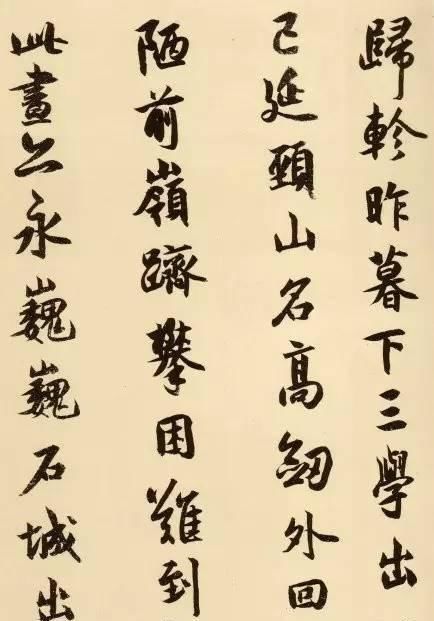 歸軫昨暮下三學出
已延頸山名高劒外回
陋前嶺躋攀困難到
此晝亦永巍巍石城出